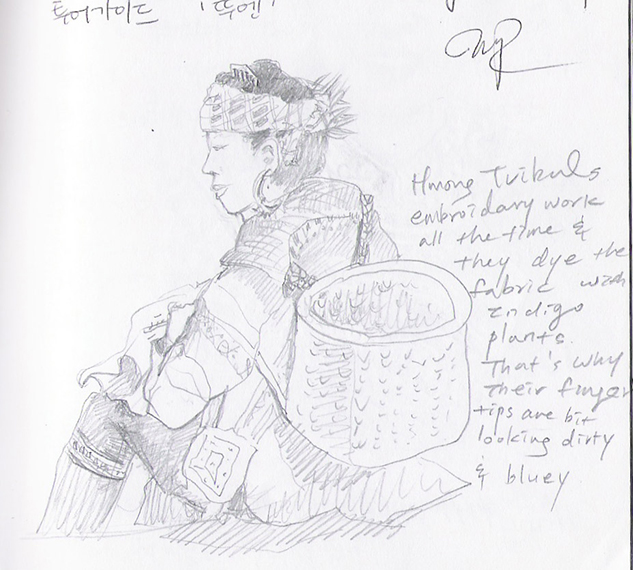 투어가이드 '뚜엔'
Hmong Tribuls
embroidary work
all the time &
they dye the
fabric with
indigo
plants.
That's why
their finger
tips are bit
looking dirty
& bluey